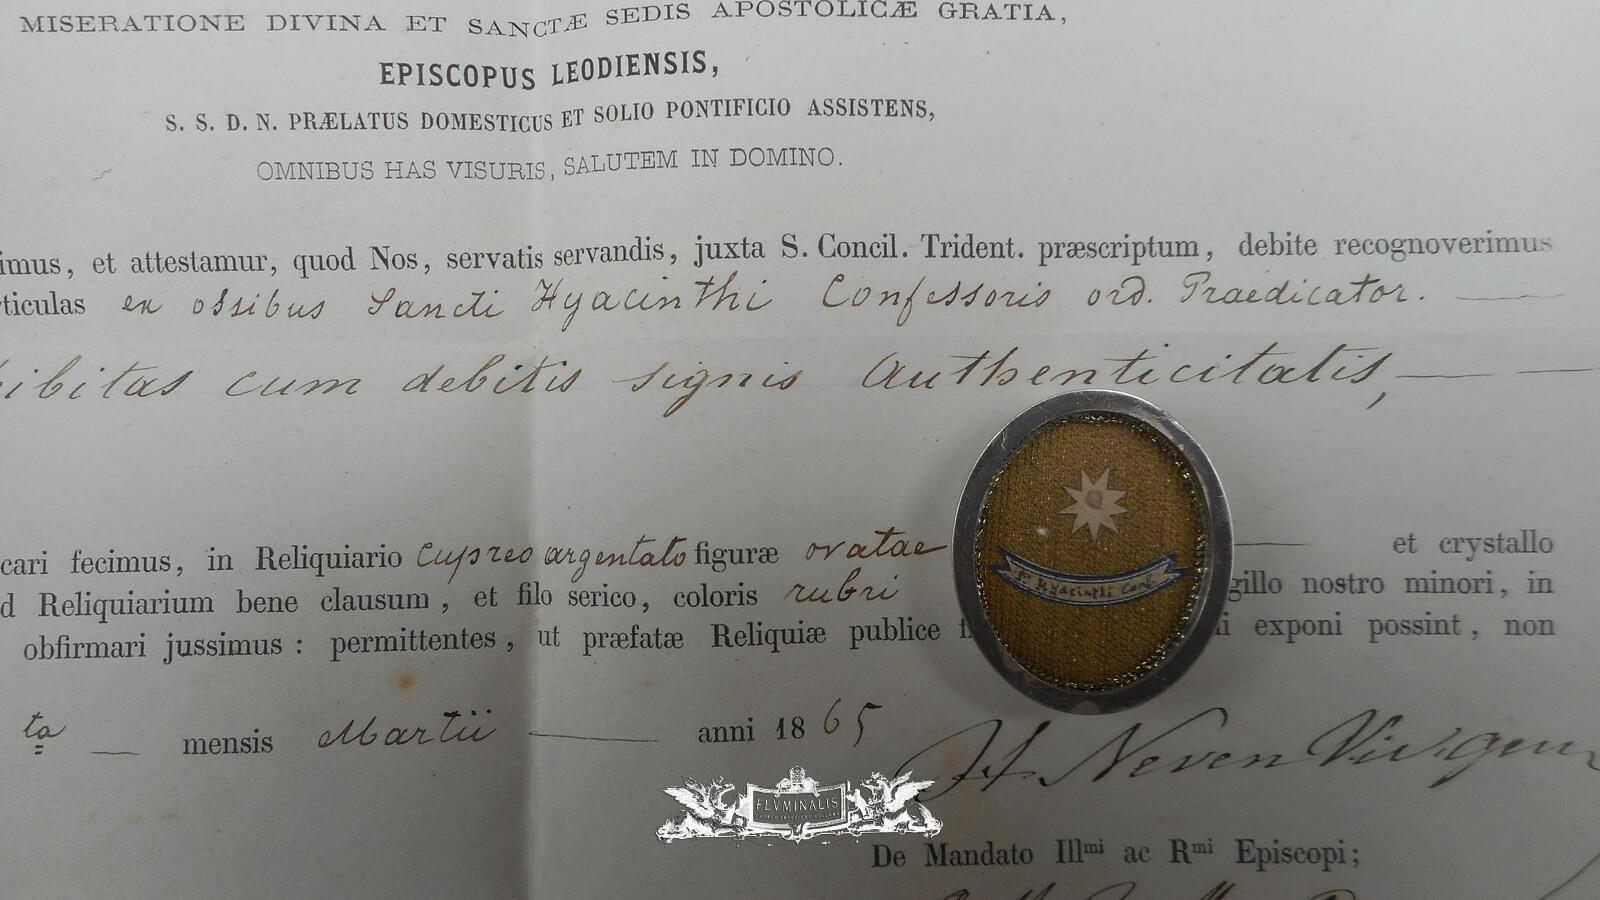 MISERATIONE DIVINA ET SANCTÆ SEDIS APOSTOLICÆ GRATIA,
EPISCOPUS LEODIENSIS,
S. S. D. N. PRÆLATUS DOMESTICUS ET SOLIO PONTIFICIO ASSISTENS,
OMNIBUS HAS VISURIS, SALUTEM IN DOMINO.
imus, et attestamur, quod Nos, servatis servandis, juxta S. Concil. Trident. præscriptum, debite recognoverimus
rticulas ex ossibus Sancti Hyacinthi Confessoris ord. Praedicator.
ibitas cum debitis signis authenticitatis,
cari fecimus, in Reliquiario cupreo argentato figuræ ovatae et crystallo
d Reliquiarium bene clausum, et filo serico, coloris rubri gillo nostro minori, in
obfirmari jussimus : permittentes, ut præfatæ Reliquiæ publice exponi possint, non
S. Hyacinthi Conf.
ta mensis Martii anni 1865
H. Neven Vic. gen
FLVMINALIS
De Mandato Illmi ac Rmi Episcopi;